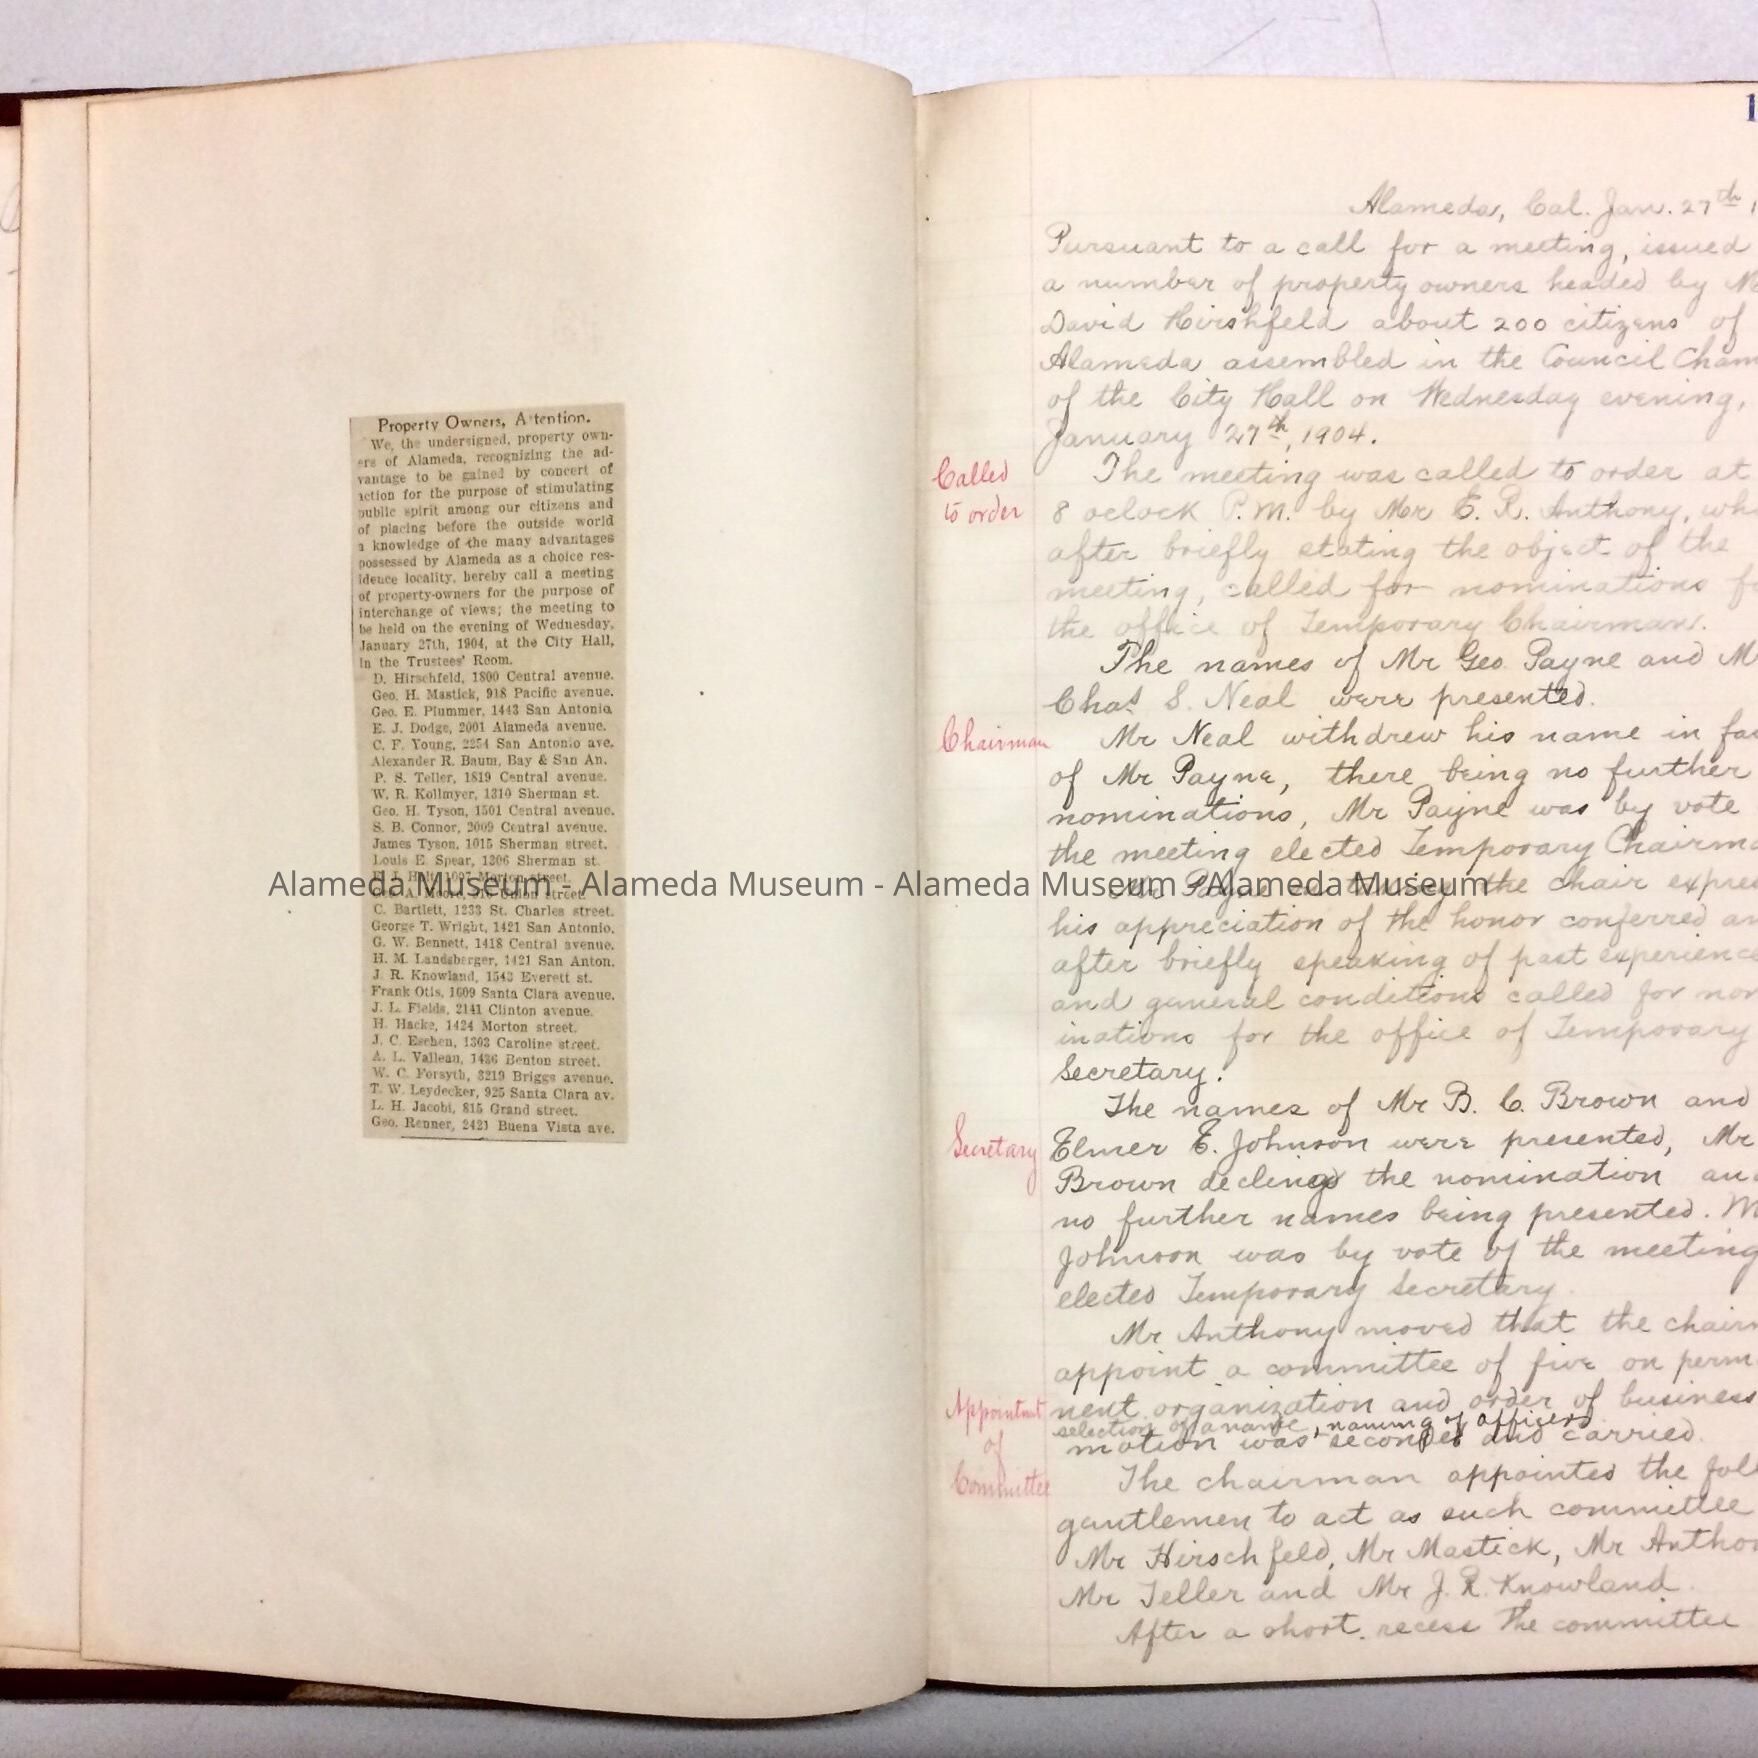 Property Owners, Attention.
We, the undersigned, property own-
ers of Alameda, recognizing the ad-
vantage to be gained by concert of
action for the purpose of stimulating
public spirit among our citizens and
of placing before the outside world
a knowledge of the many advantages
possessed by Alameda as a choice res-
idence locality, hereby call a meeting
of property-owners for the purpose of
interchange of views; the meeting to
be held on the evening of Wednesday,
January 27th, 1904, at the City Hall,
in the Trustees' Room.
D. Hirschfeld, 1800 Central avenue.
Geo. H. Mastick, 918 Pacific avenue.
Geo. E. Plummer, 1443 San Antonio
E. J. Dodge, 2001 Alameda avenue.
C. F. Young, 2254 San Antonio ave.
Alexander R. Baum, Bay & San An.
P. S. Teller, 1819 Central avenue.
W. R. Kollmyer, 1310 Sherman st.
Geo. H. Tyson, 1501 Central avenue.
S. B. Connor, 2009 Central avenue.
James Tyson, 1015 Sherman street.
Louis E. Spear, 1306 Sherman st.
Morton street.
A. Moore, Union street.
C. Bartlett, 1233 St. Charles street.
George T. Wright, 1421 San Antonio.
G. W. Bennett, 1418 Central avenue.
H. M. Landsberger, 1421 San Anton.
J. R. Knowland, 1543 Everett st.
Frank Otis, 1609 Santa Clara avenue.
J. L. Fields, 2141 Clinton avenue.
H. Hacke, 1424 Morton street.
J. C. Eschen, 1303 Caroline street.
A. L. Valleau, 1436 Benton street.
W. C. Forsyth, 3219 Briggs avenue.
T. W. Leydecker, 925 Santa Clara av.
L. H. Jacobi, 815 Grand street.
Geo. Renner, 2421 Buena Vista ave.
Alameda Museum - Alameda Museum - Alameda Museum - Alameda Museum
1
Alameda, Cal. Jan. 27th, 1
Pursuant to a call for a meeting, issued
a number of property owners headed by
David Hirshfeld about 200 citizens of
Alameda assembled in the Council Cham
of the City Hall on Wednesday evening,
January 27th, 1904.
Called
to order
The meeting was called to order at
8 oclock P.M. by Mr E. R. Anthony, wh
after briefly stating the object of the
meeting, called for nominations f
the office of Temporary Chairman.
The names of Mr Geo Payne and M
Chas S. Neal were presented.
Chairman
Mr Neal withdrew his name in fa
of Mr Payne, there being no further
nominations, Mr Payne was by vote
the meeting elected Temporary Chairma
Mr Payne on taking the chair expres
his appreciation of the honor conferred an
after briefly speaking of past experience
and general conditions called for nom
inations for the office of Temporary
Secretary.
The names of Mr B. C. Brown and
Secretary
Elmer E. Johnson were presented, Mr
Brown declined the nomination an
no further names being presented. M
Johnson was by vote of the meeting
elected Temporary Secretary.
Mr Anthony moved that the chair
appoint a committee of five on perm
Appointmt
of
Committee
nent organization and order of business
selection of a name, naming of officers
motion was seconded and carried.
The chairman appointed the foll
gentlemen to act as such committee
Mr Hirschfeld, Mr Mastick, Mr Antho
Mr Teller and Mr J. R. Knowland.
After a short recess the committee